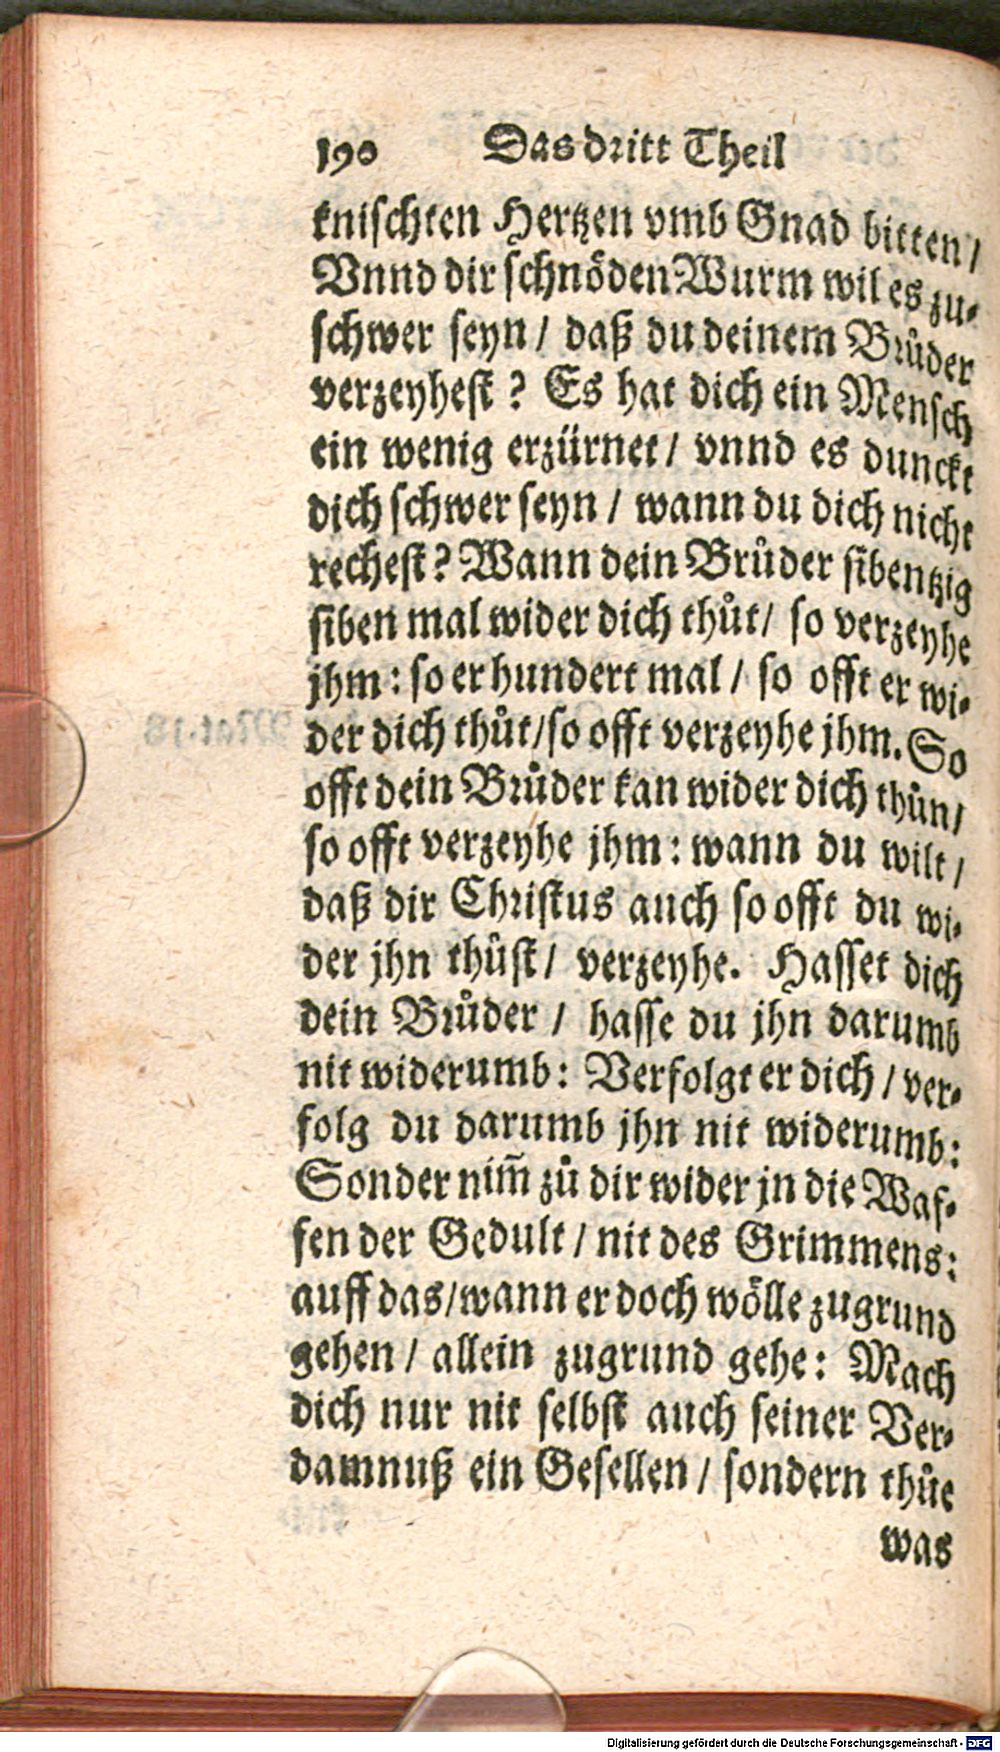 190 Das dritt Theil
knischten Hertzen vmb Gnad bitten /
Vnnd dir schnöden Wurm wil es zu-
schwer seyn / daß du deinem Brůder
verzeyhest ? Es hat dich ein Mensch
ein wenig erzürnet / vnnd es dunckt
dich schwer seyn / wann du dich nicht
rechest ? Wann dein Brůder sibentzig
siben mal wider dich thůt / so verzeyhe
jhm : so er hundert mal / so offt er wi-
der dich thůt / so offt verzeyhe jhm. So
offt dein Brůder kan wider dich thůn /
so offt verzeyhe jhm : wann du wilt /
daß dir Christus auch so offt du wi-
der jhn thůst / verzeyhe. Hasset dich
dein Brůder / hasse du jhn darumb
nit widerumb : Verfolgt er dich / ver-
folg du darumb jhn nit widerumb :
Sonder nim̃ zů dir wider jn die Waf-
fen der Gedult / nit des Grimmens :
auff das / wann er doch wölle zugrund
gehen / allein zugrund gehe : Mach
dich nur nit selbst auch seiner Ver-
damnuß ein Gesellen / sondern thůe
was
Digitalisierung gefördert durch die Deutsche Forschungsgemeinschaft - DFG